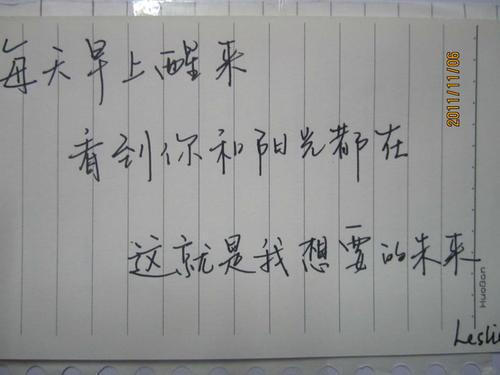 每天早上醒来
看到你和阳光都在
这就是我想要的未来
Leslie
HuaGan
2011/11/06